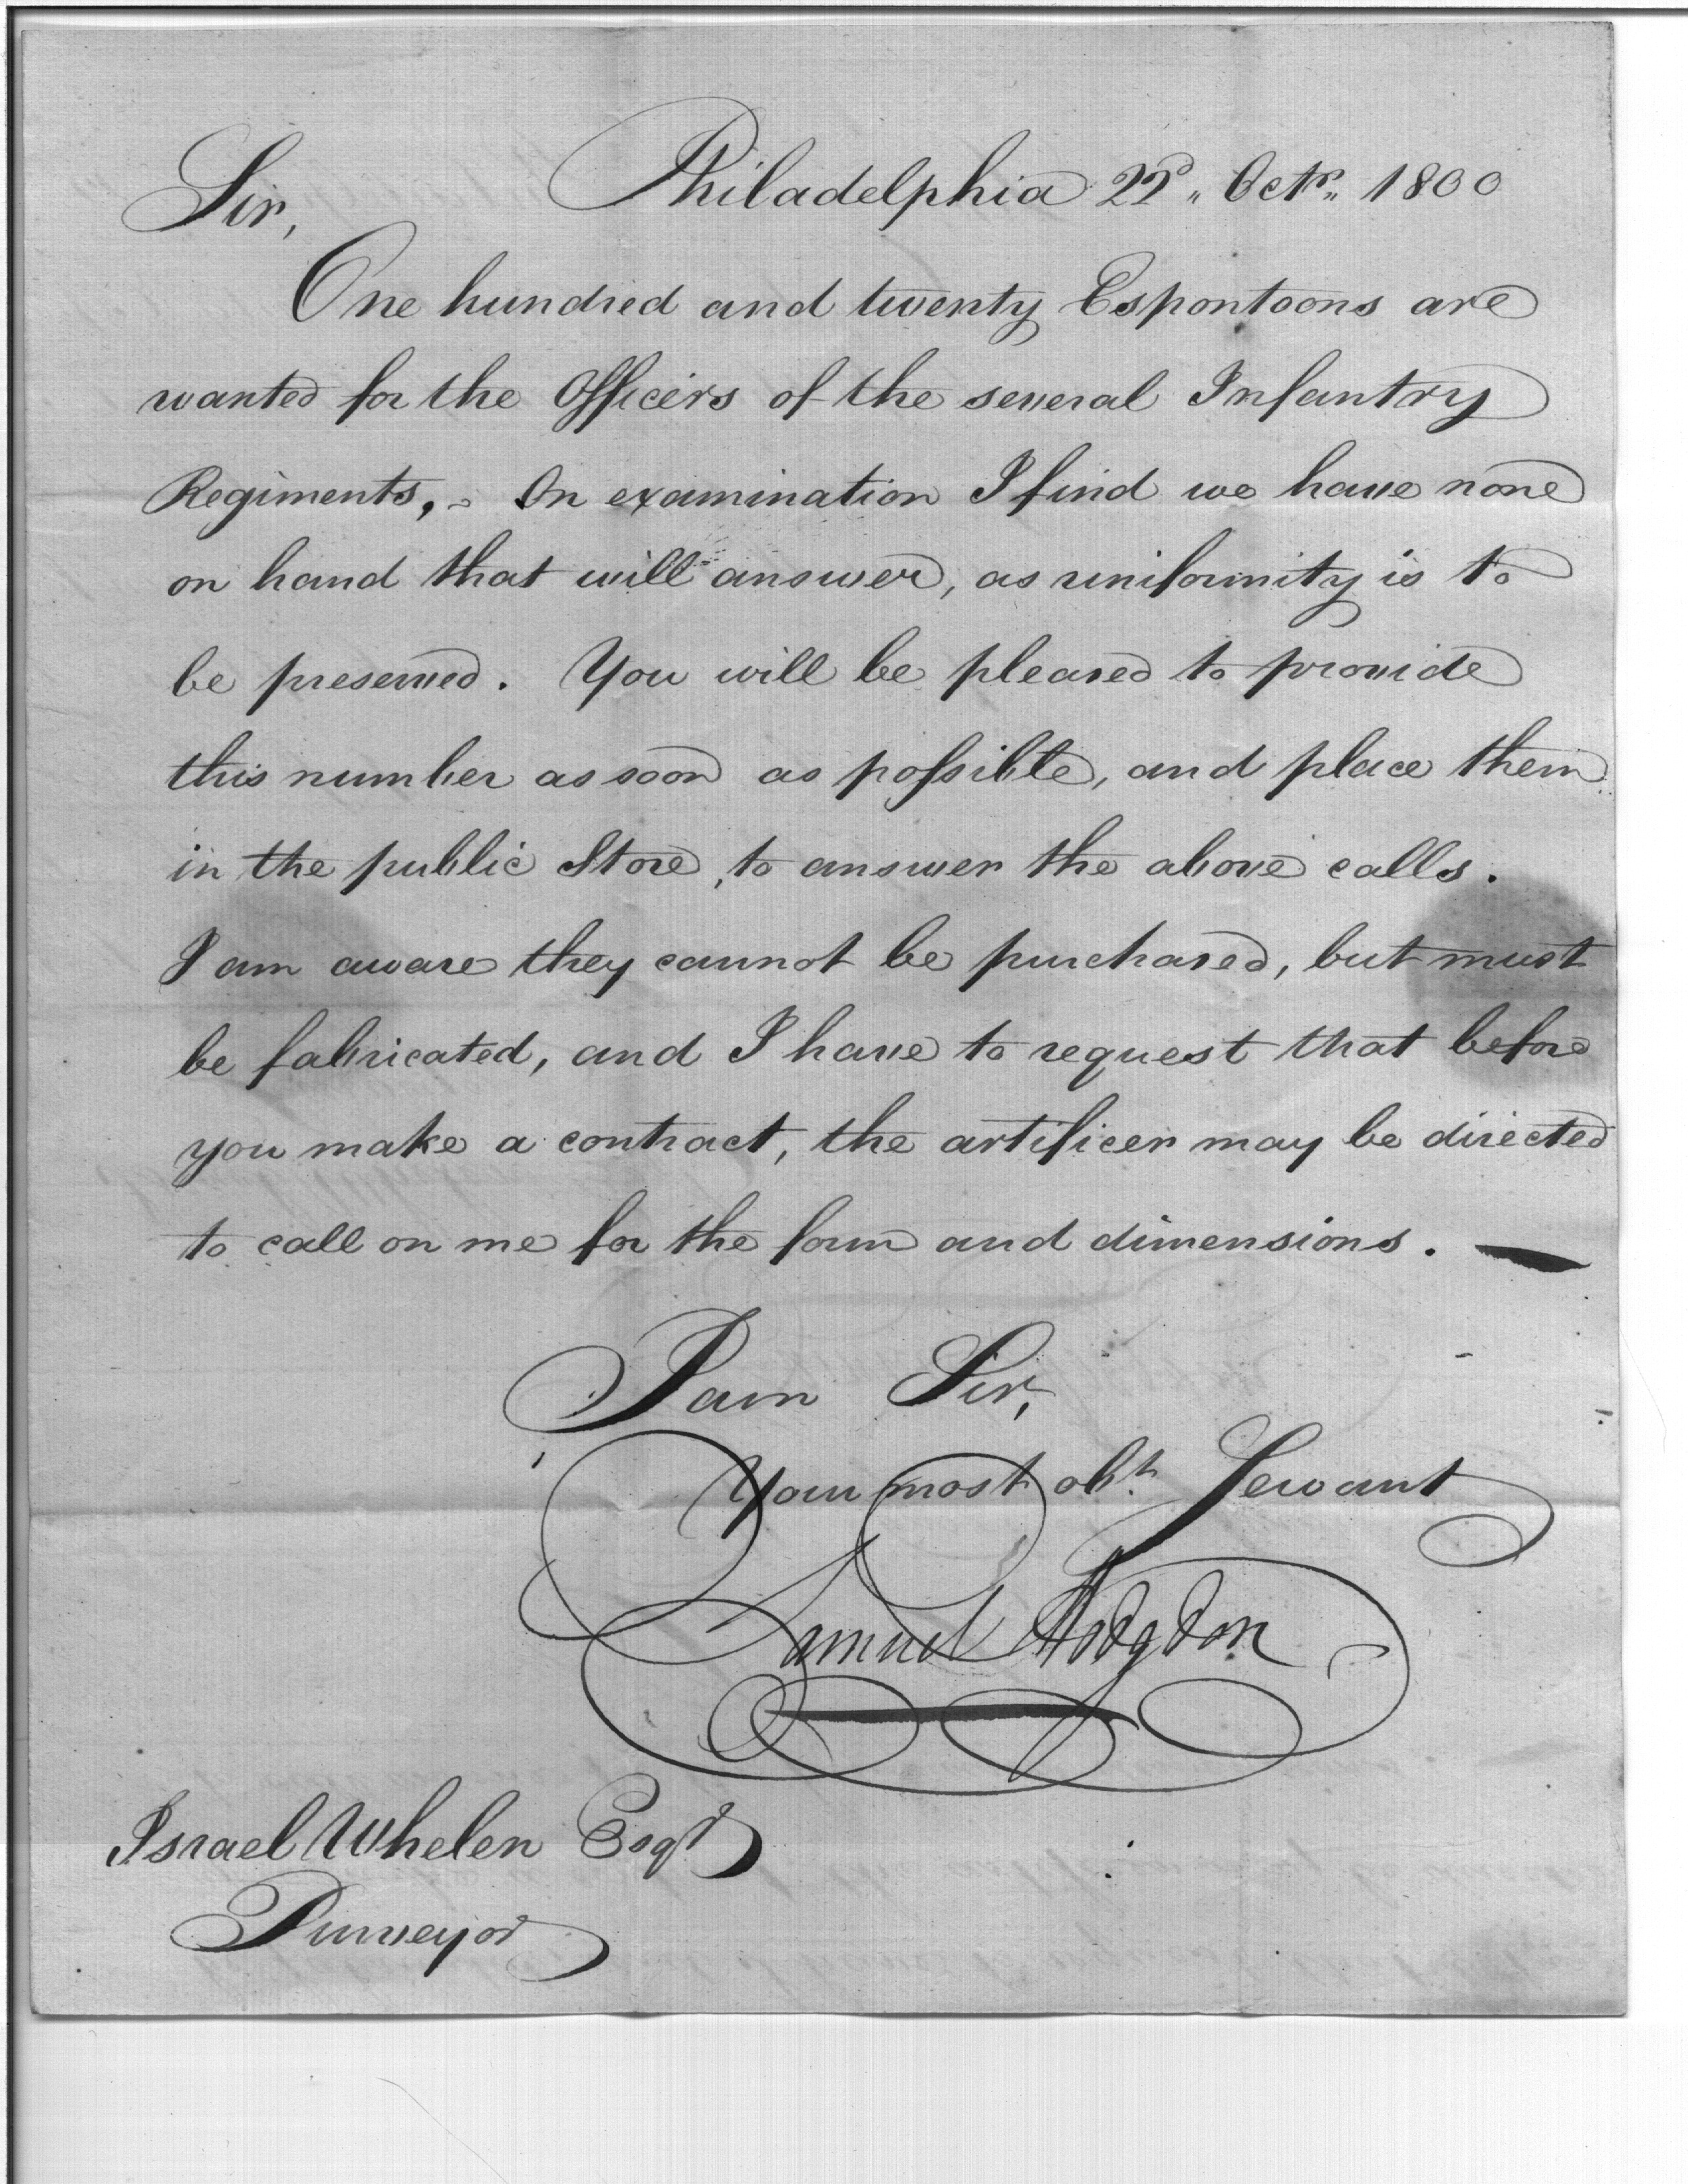 Philadelphia 22d. Octr. 1800
Sir,
One hundred and twenty Espontoons are
wanted for the Officers of the several Infantry
Regiments, - On examination I find we have none
on hand that will answer, as uniformity is to
be preserved. You will be pleased to provide
this number as soon as possible, and place them
in the public Store, to answer the above calls.
I am aware they cannot be purchased, but must
be fabricated, and I have to request that before
you make a contract, the artificer may be directed
to call on me for the form and dimensions. —
I am Sir,
Your most obt. Servant
Samuel Hodgdon
Israel Whelen Esqr
Purveyor